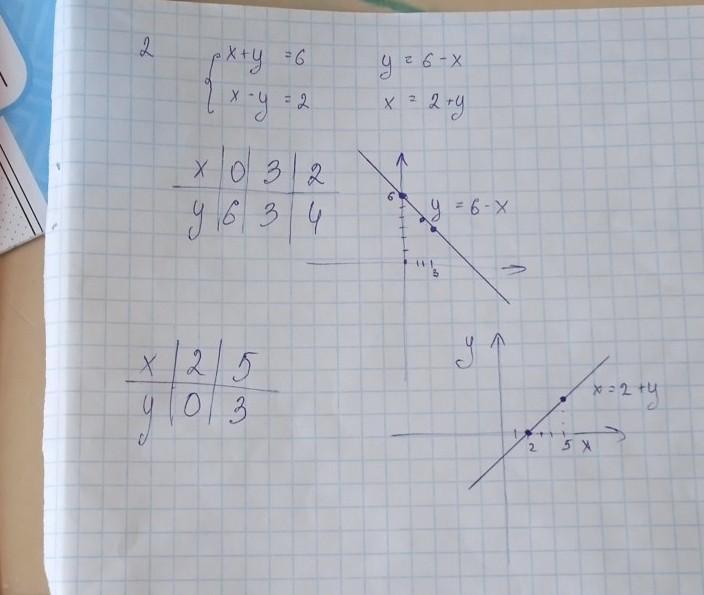 2
{ x+y = 6
x-y = 2
y = 6-x
x = 2+y
x | 0 | 3 | 2
y | 6 | 3 | 4
6
y = 6-x
3
x | 2 | 5
y | 0 | 3
y
x = 2+y
1 2 5 x